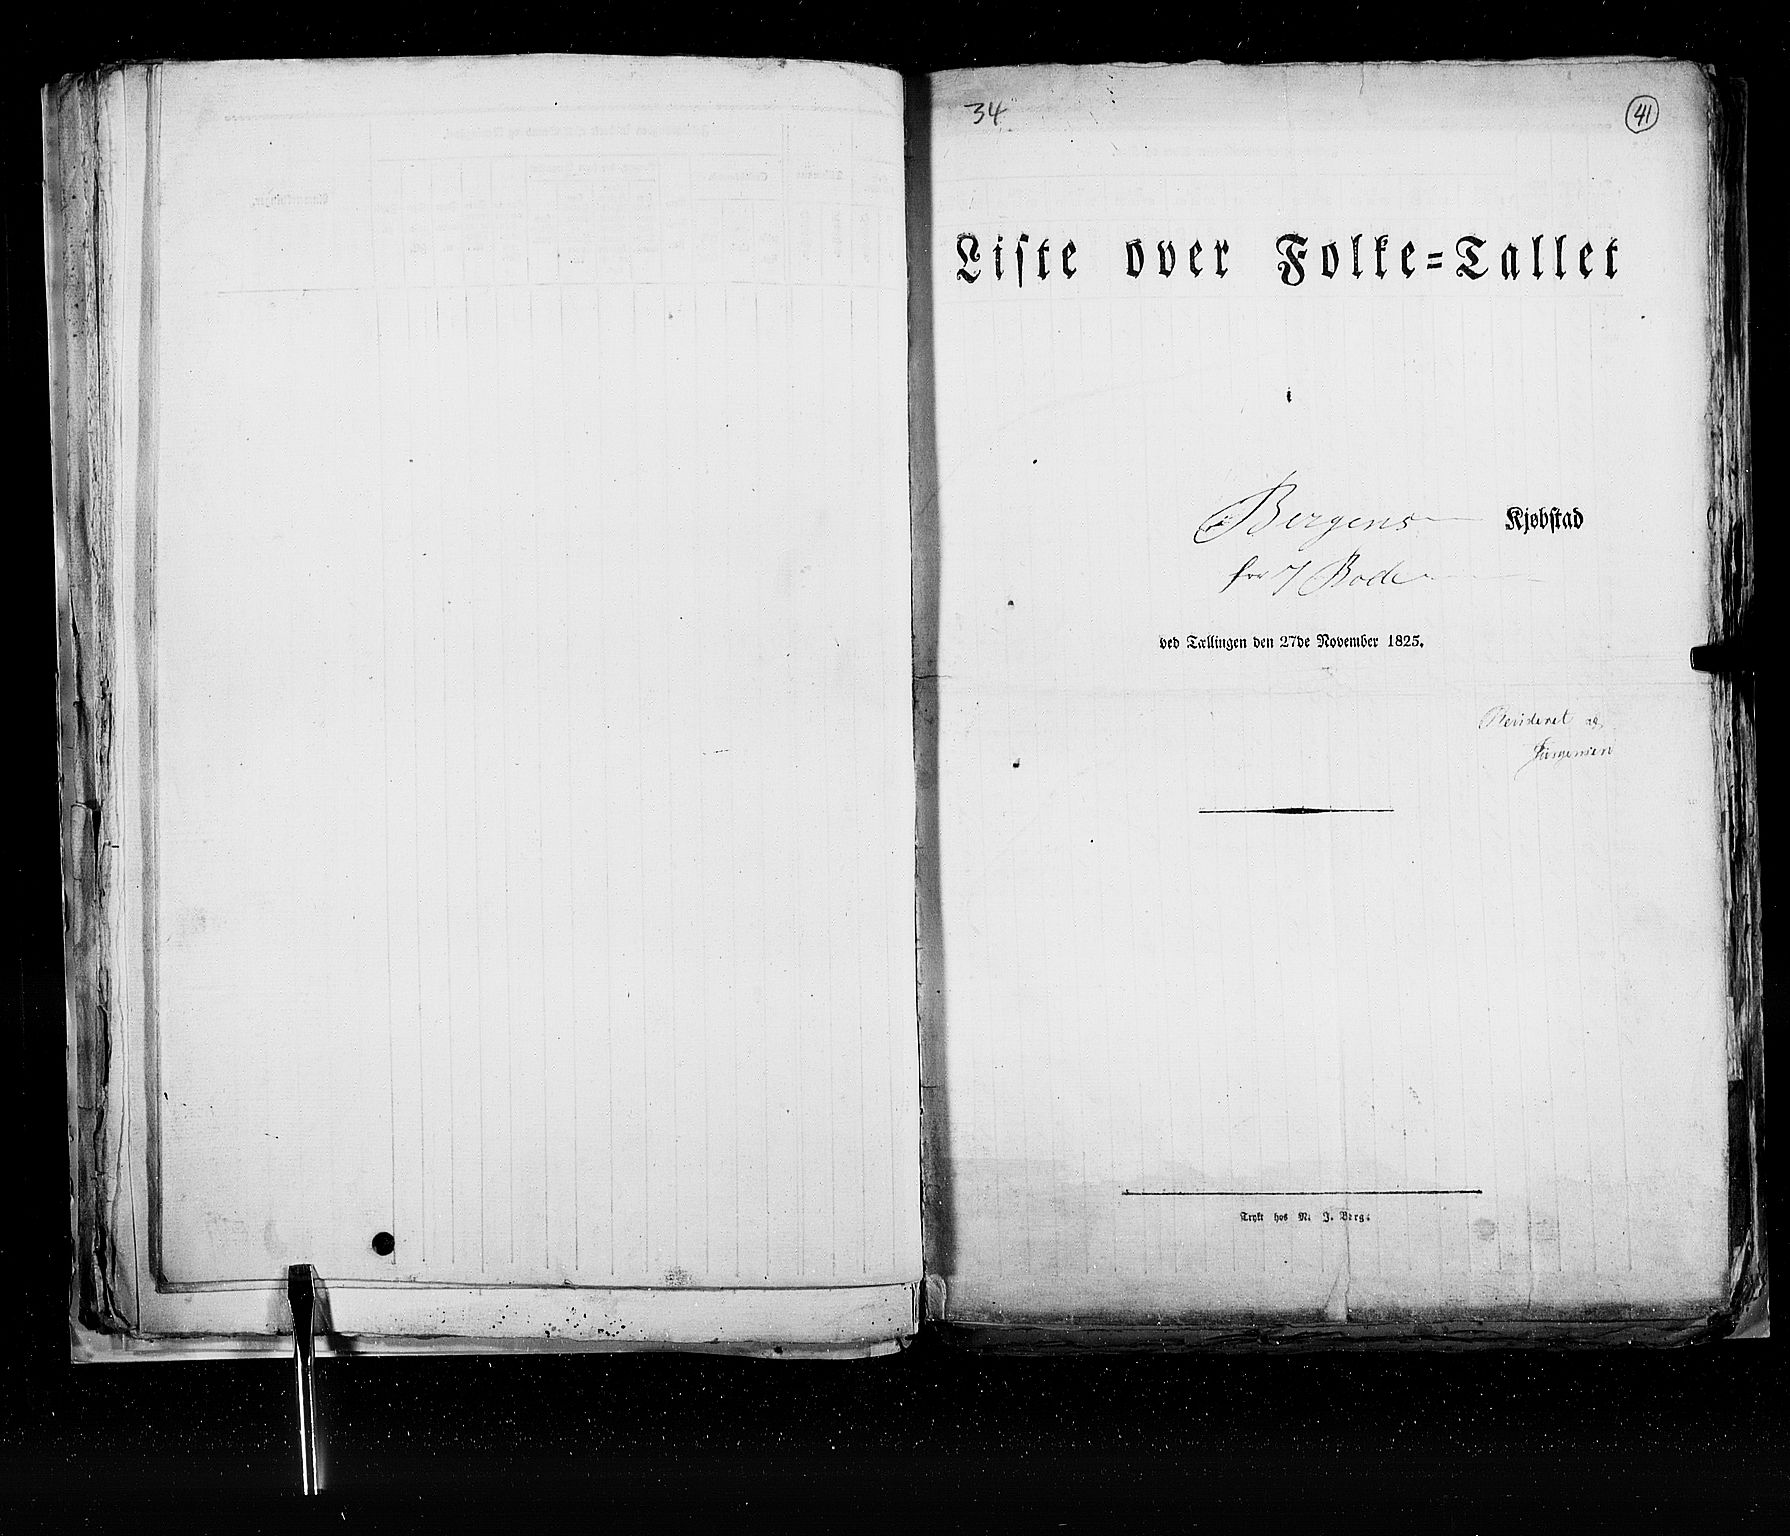 34
41
Liste over Folke=Tallet
i
Bergens Kjøbstad
for 7 Rode
ved Tællingen den 27de November 1825.
Revideret af
Jürgensen
Trykt hos N. J. Berg.